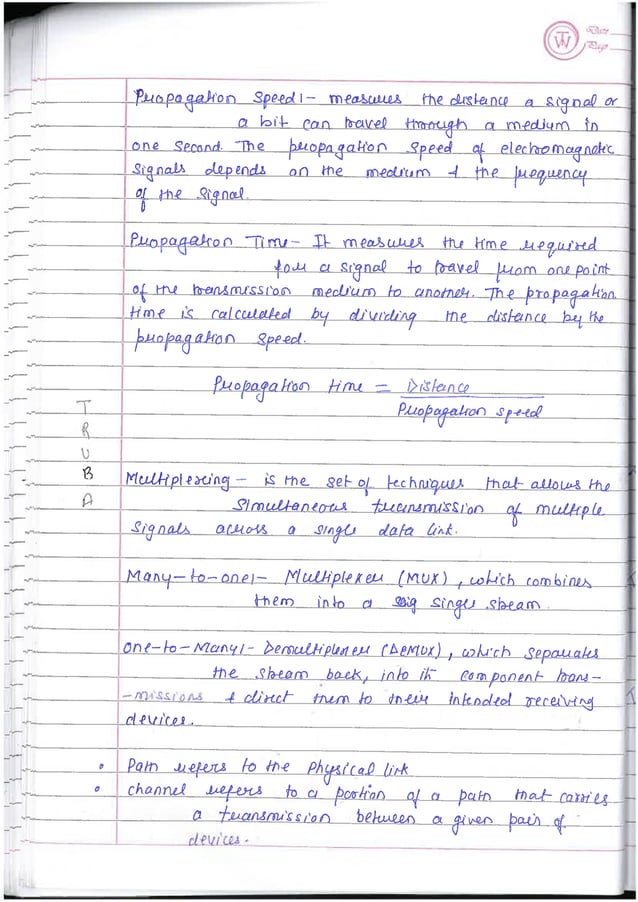 Date
Page
Propagation Speed:- measures the distance a signal or
a bit can travel through a medium in
one second. The propagation speed of electromagnetic
signals depends on the medium & the frequency
of the signal.
Propagation Time- It measures the time required
for a signal to travel from one point
of the transmission medium to another. The propagation
time is calculated by dividing the distance by the
propagation speed.
Propagation time = Distance
Propagation speed
T
R
U
B
A
Multiplexing - is the set of techniques that allows the
simultaneous transmission of multiple
signals across a single data link.
Many-to-one:- Multiplexer (MUX), which combines
them into a single stream.
One-to-Many:- Demultiplexer (DeMUX), which separates
the stream back, into it component trans-
-missions & direct them to their intended receiving
devices.
• Path refers to the physical link
• channel refers to a portion of a path that carries
a transmission between a given pair of
devices.